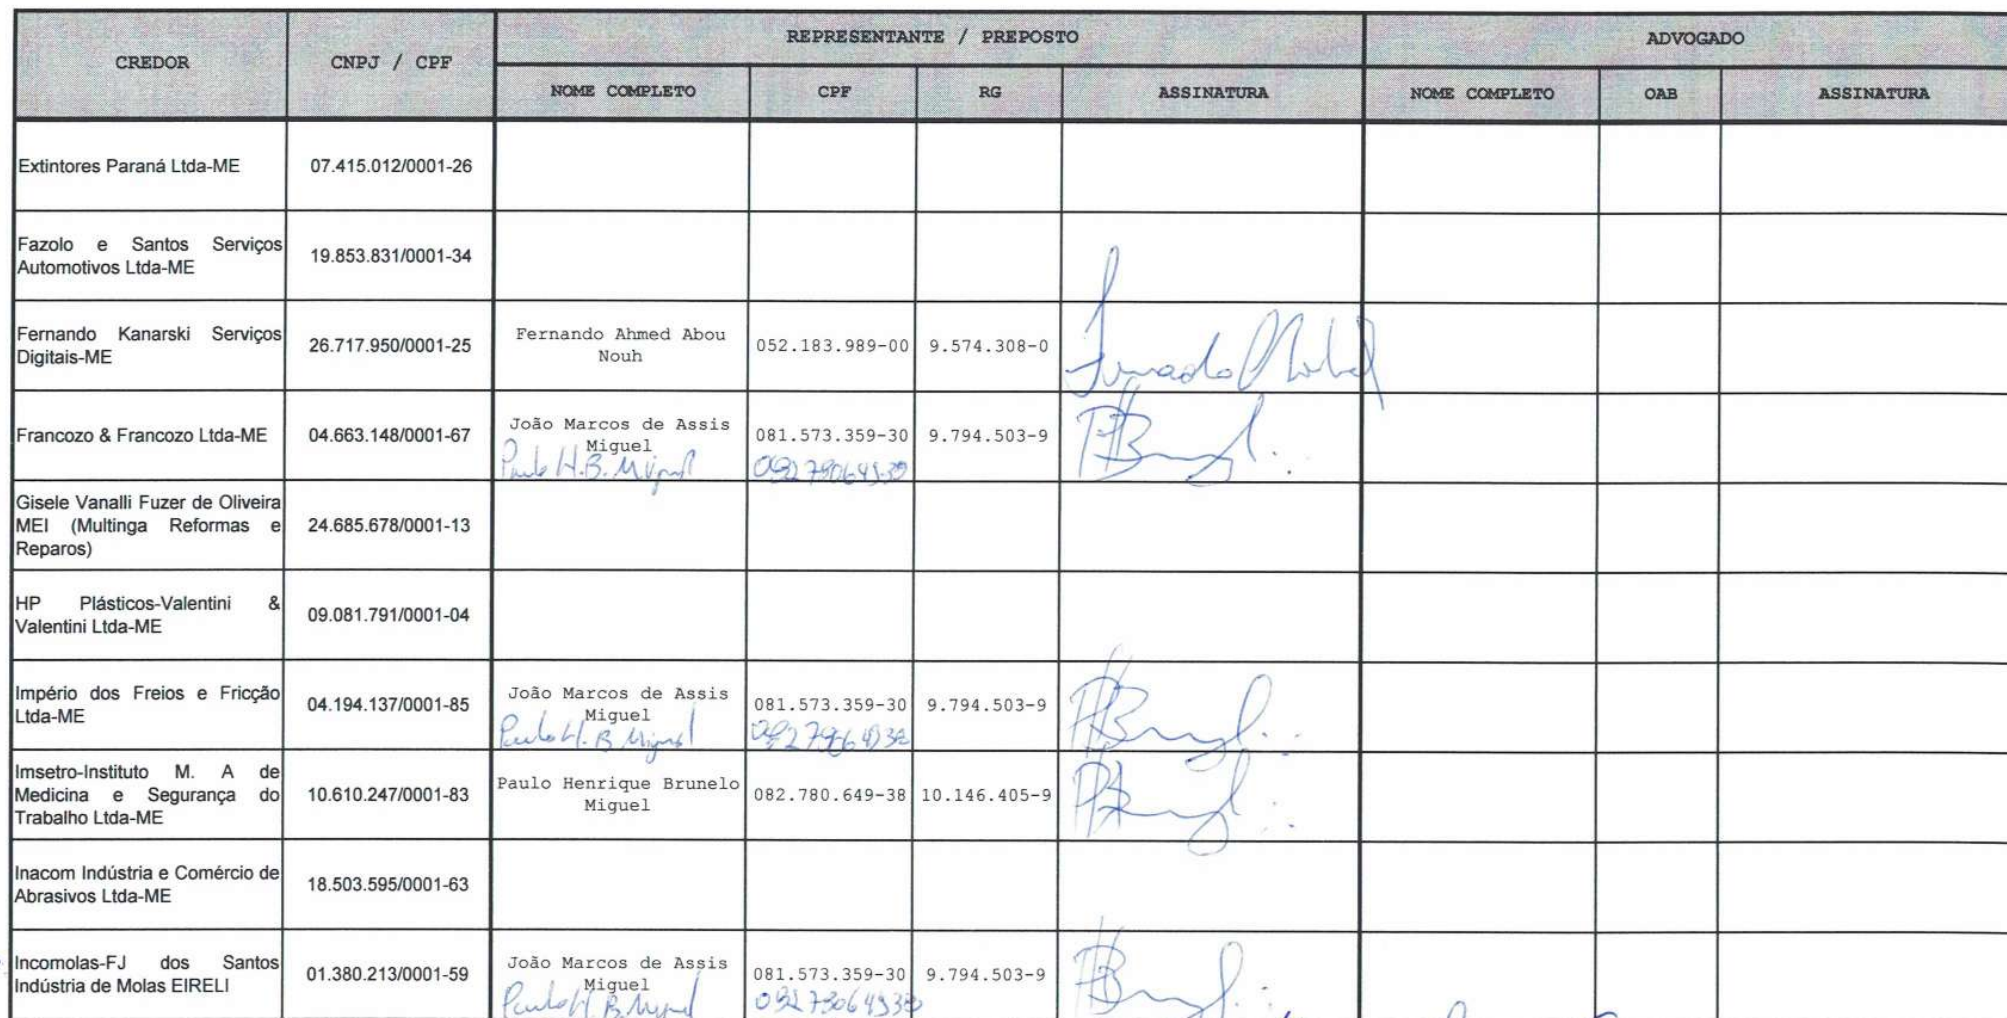 CREDOR
CNPJ / CPF
REPRESENTANTE / PREPOSTO
ADVOGADO
NOME COMPLETO
CPF
RG
ASSINATURA
NOME COMPLETO
OAB
ASSINATURA
Extintores Paraná Ltda-ME
07.415.012/0001-26
Fazolo e Santos Serviços
Automotivos Ltda-ME
19.853.831/0001-34
Fernando Kanarski Serviços
Digitais-ME
26.717.950/0001-25
Fernando Ahmed Abou
Nouh
052.183.989-00
9.574.308-0
Francozo & Francozo Ltda-ME
04.663.148/0001-67
João Marcos de Assis
Miguel
Paulo H.B. Miguel
081.573.359-30
9.794.503-9
Gisele Vanalli Fuzer de Oliveira
MEI (Multinga Reformas e
Reparos)
24.685.678/0001-13
HP Plásticos-Valentini &
Valentini Ltda-ME
09.081.791/0001-04
Império dos Freios e Fricção
Ltda-ME
04.194.137/0001-85
João Marcos de Assis
Miguel
Paulo H. B Miguel
081.573.359-30
9.794.503-9
Imsetro-Instituto M. A de
Medicina e Segurança do
Trabalho Ltda-ME
10.610.247/0001-83
Paulo Henrique Brunelo
Miguel
082.780.649-38
10.146.405-9
Inacom Indústria e Comércio de
Abrasivos Ltda-ME
18.503.595/0001-63
Incomolas-FJ dos Santos
Indústria de Molas EIRELI
01.380.213/0001-59
João Marcos de Assis
Miguel
Paulo H. B. Miguel
081.573.359-30
9.794.503-9